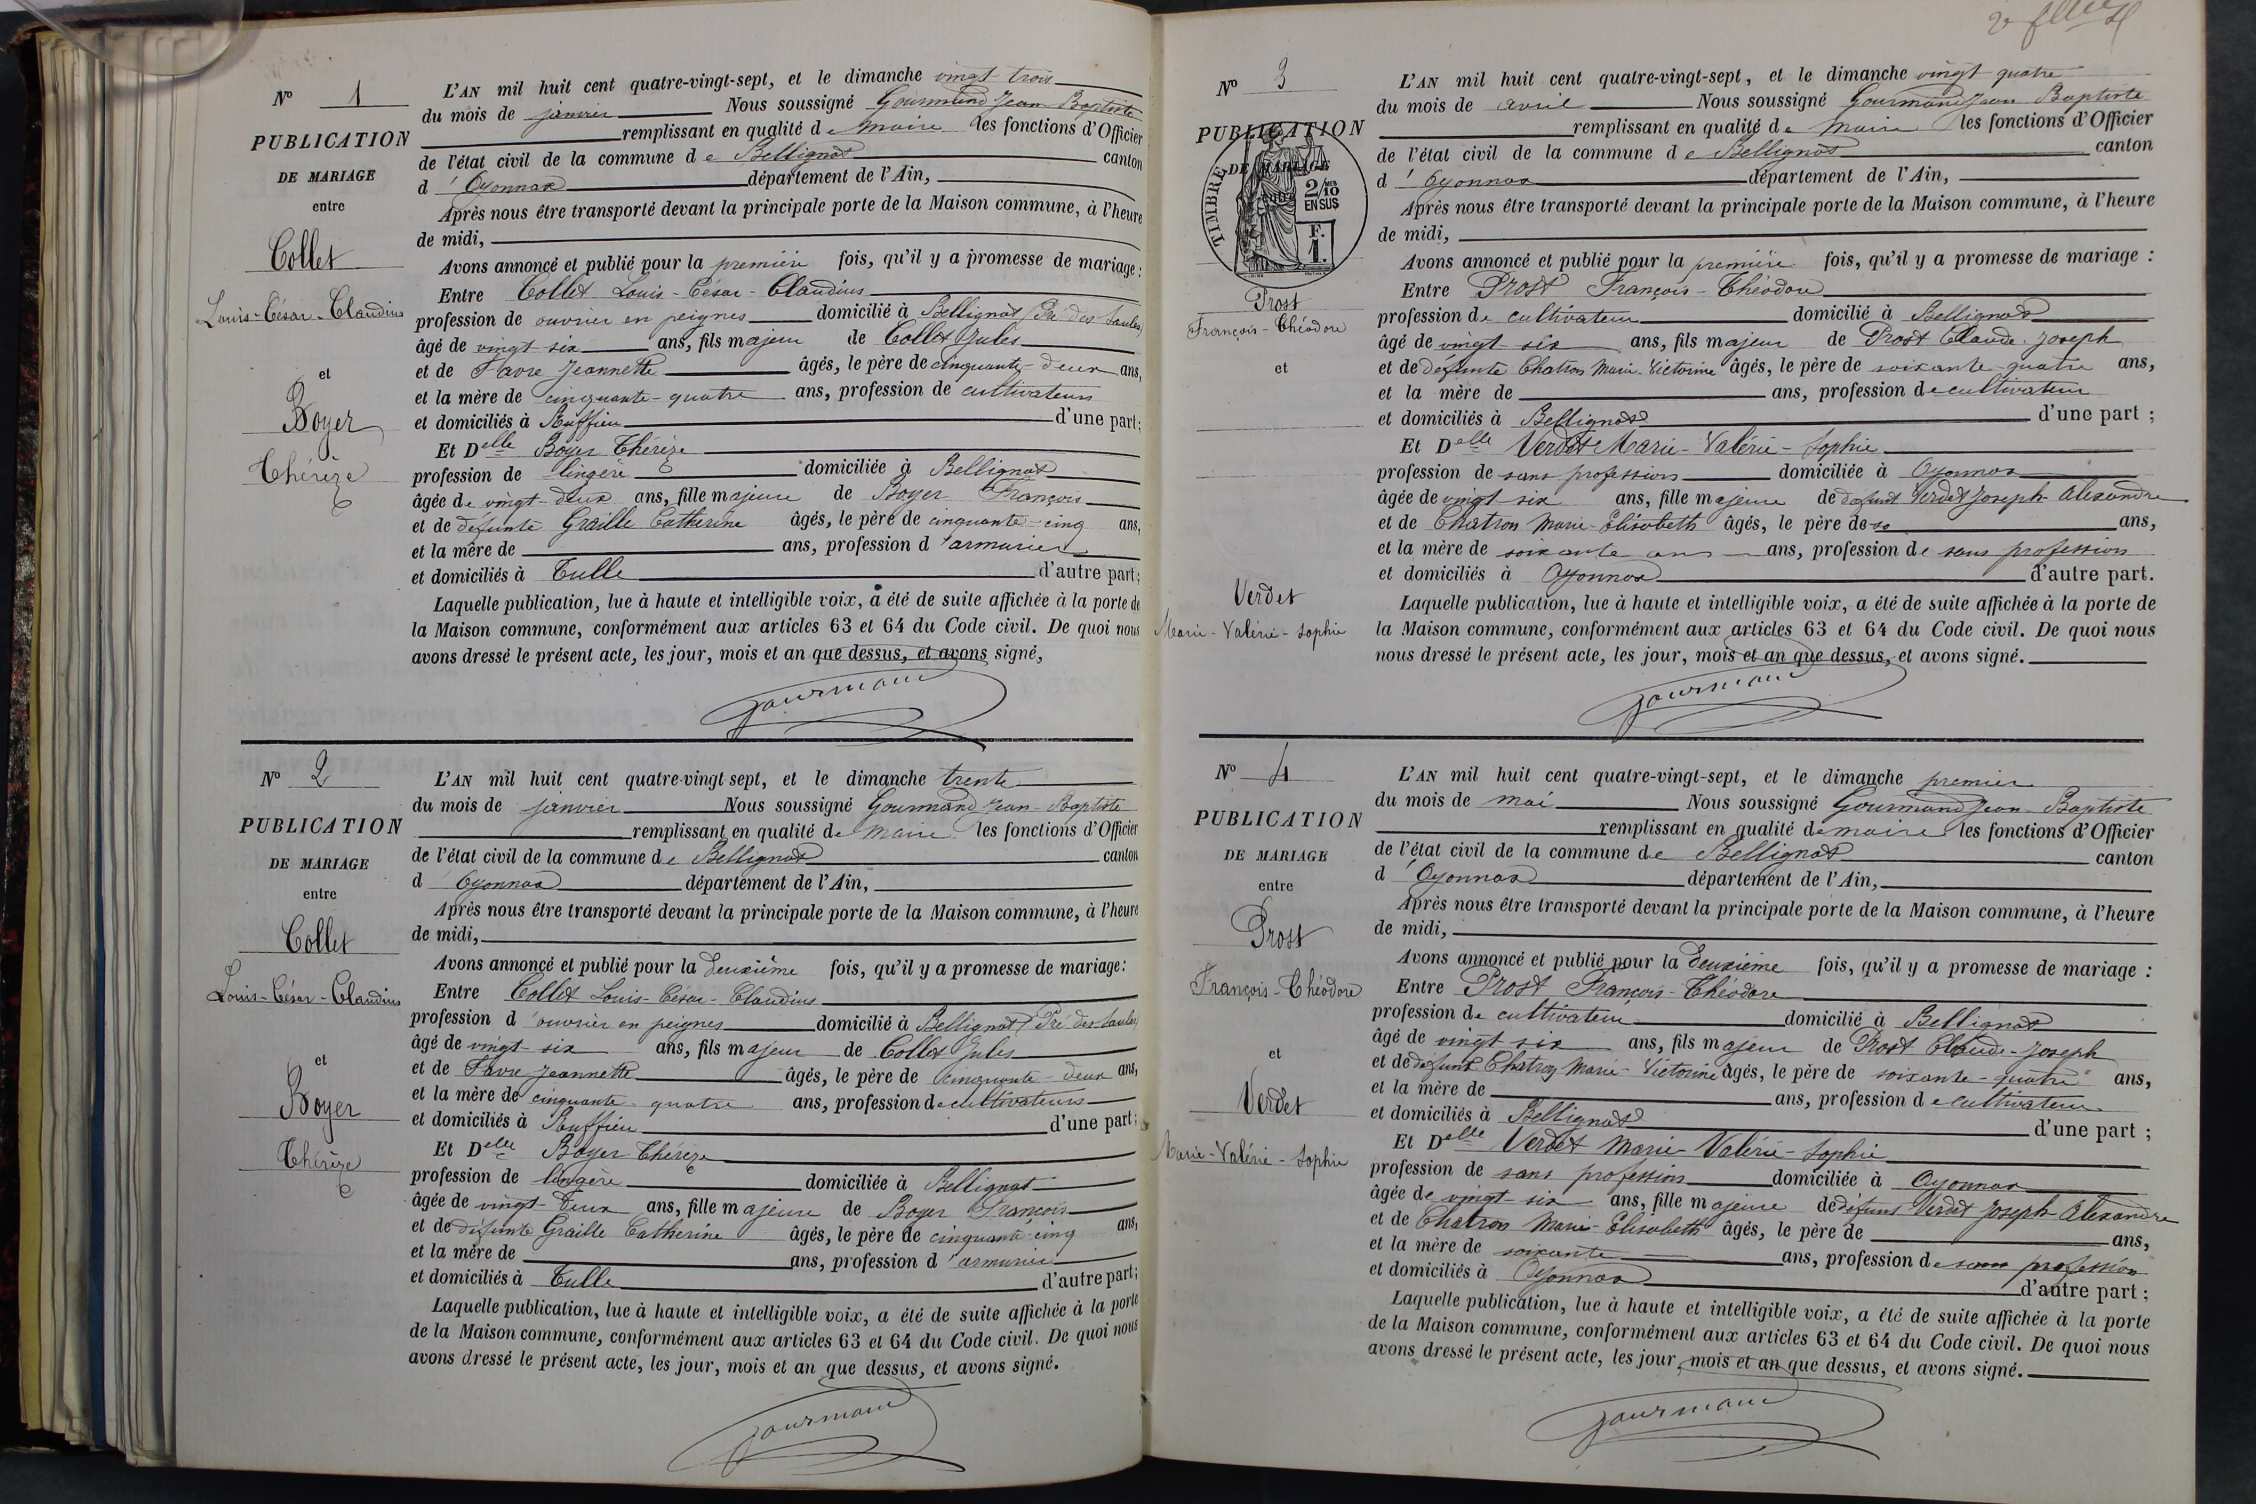 N° 1
PUBLICATION
DE MARIAGE
entre
Collet
Louis-César-Claudius
et
Boyer
Thérèze
L'AN mil huit cent quatre-vingt-sept, et le dimanche vingt trois
du mois de janvier Nous soussigné Gourmand Jean Baptiste
remplissant en qualité de maire les fonctions d'Officier
de l'état civil de la commune de Bellignat canton
d'Oyonnax département de l'Ain,
Après nous être transporté devant la principale porte de la Maison commune, à l'heure
de midi,
Avons annoncé et publié pour la première fois, qu'il y a promesse de mariage :
Entre Collet Louis-César-Claudius
profession de ouvrier en peignes domicilié à Bellignat (Pré des Saules)
âgé de vingt six ans, fils majeur de Collet Jules
et de Favre Jeannette âgés, le père de cinquante-deux ans,
et la mère de cinquante-quatre ans, profession de cultivateurs
et domiciliés à Ruffieu d'une part;
Et Delle Boyer Thérèze
profession de lingère domiciliée à Bellignat
âgée de vingt-deux ans, fille majeure de Boyer François
et de défunte Graille Catherine âgés, le père de cinquante-cinq ans,
et la mère de ans, profession d'armurier
et domiciliés à Tulle d'autre part;
Laquelle publication, lue à haute et intelligible voix, a été de suite affichée à la porte de
la Maison commune, conformément aux articles 63 et 64 du Code civil. De quoi nous
avons dressé le présent acte, les jour, mois et an que dessus, et avons signé,
Gourmand
N° 2
PUBLICATION
DE MARIAGE
entre
Collet
Louis-César-Claudius
et
Boyer
Thérèze
L'AN mil huit cent quatre-vingt sept, et le dimanche trente
du mois de janvier Nous soussigné Gourmand Jean-Baptiste
remplissant en qualité de maire les fonctions d'Officier
de l'état civil de la commune de Bellignat canton
d Oyonnax département de l'Ain,
Après nous être transporté devant la principale porte de la Maison commune, à l'heure
de midi,
Avons annoncé et publié pour la deuxième fois, qu'il y a promesse de mariage:
Entre Collet Louis-César-Claudius
profession d'ouvrier en peignes domicilié à Bellignat (Pré des Saules)
âgé de vingt-six ans, fils majeur de Collet Jules
et de Favre Jeannette âgés, le père de cinquante-deux ans,
et la mère de cinquante quatre ans, profession de cultivateurs
et domiciliés à Ruffieu d'une part;
Et Delle Boyer Thérèze
profession de lingère domiciliée à Bellignat
âgée de vingt-deux ans, fille majeure de Boyer François
et de défunte Graille Catherine âgés, le père de cinquante cinq ans,
et la mère de ans, profession d'armurier
et domiciliés à Tulle d'autre part;
Laquelle publication, lue à haute et intelligible voix, a été de suite affichée à la porte
de la Maison commune, conformément aux articles 63 et 64 du Code civil. De quoi nous
avons dressé le présent acte, les jour, mois et an que dessus, et avons signé.
Gourmand
N° 3
PUBLICATION
DE MARIAGE
entre
TIMBRE
2/10 EN SUS
F. 1.
Prost
François-Théodore
et
Verdet
Marie-Valérie-Sophie
L'AN mil huit cent quatre-vingt-sept, et le dimanche vingt quatre
du mois de avril Nous soussigné Gourmand Jean Baptiste
remplissant en qualité de maire les fonctions d'Officier
de l'état civil de la commune de Bellignat canton
d'Oyonnax département de l'Ain,
Après nous être transporté devant la principale porte de la Maison commune, à l'heure
de midi,
Avons annoncé et publié pour la première fois, qu'il y a promesse de mariage :
Entre Prost François-Théodore
profession de cultivateur domicilié à Bellignat
âgé de vingt six ans, fils majeur de Prost Claude Joseph
et de défunte Chatron Marie Victorine âgés, le père de soixante-quatre ans,
et la mère de ans, profession de cultivateur
et domiciliés à Bellignat d'une part ;
Et Delle Verdet Marie-Valérie-Sophie
profession de sans profession domiciliée à Oyonnax
âgée de vingt six ans, fille majeure de défunt Verdet Joseph-Alexandre
et de Chatron Marie-Elisabeth âgés, le père de ans,
et la mère de soixante ans ans, profession de sans profession
et domiciliés à Oyonnax d'autre part.
Laquelle publication, lue à haute et intelligible voix, a été de suite affichée à la porte de
la Maison commune, conformément aux articles 63 et 64 du Code civil. De quoi nous
nous dressé le présent acte, les jour, mois et an que dessus, et avons signé.
Gourmand
N° 4
PUBLICATION
DE MARIAGE
entre
Prost
François-Théodore
et
Verdet
Marie-Valérie-Sophie
L'AN mil huit cent quatre-vingt-sept, et le dimanche premier
du mois de mai Nous soussigné Gourmand Jean-Baptiste
remplissant en qualité de maire les fonctions d'Officier
de l'état civil de la commune de Bellignat canton
d'Oyonnax département de l'Ain,
Après nous être transporté devant la principale porte de la Maison commune, à l'heure
de midi,
Avons annoncé et publié pour la deuxième fois, qu'il y a promesse de mariage :
Entre Prost François-Théodore
profession de cultivateur domicilié à Bellignat
âgé de vingt six ans, fils majeur de Prost Claude-Joseph
et de défunte Chatron Marie-Victorine âgés, le père de soixante-quatre ans,
et la mère de ans, profession de cultivateur
et domiciliés à Bellignat d'une part ;
Et Delle Verdet Marie-Valérie-Sophie
profession de sans profession domiciliée à Oyonnax
âgée de vingt-six ans, fille majeure de défunt Verdet Joseph-Alexandre
et de Chatron Marie-Elisabeth âgés, le père de ans,
et la mère de soixante ans, profession de sans profession
et domiciliés à Oyonnax d'autre part ;
Laquelle publication, lue à haute et intelligible voix, a été de suite affichée à la porte
de la Maison commune, conformément aux articles 63 et 64 du Code civil. De quoi nous
avons dressé le présent acte, les jour, mois et an que dessus, et avons signé.
Gourmand